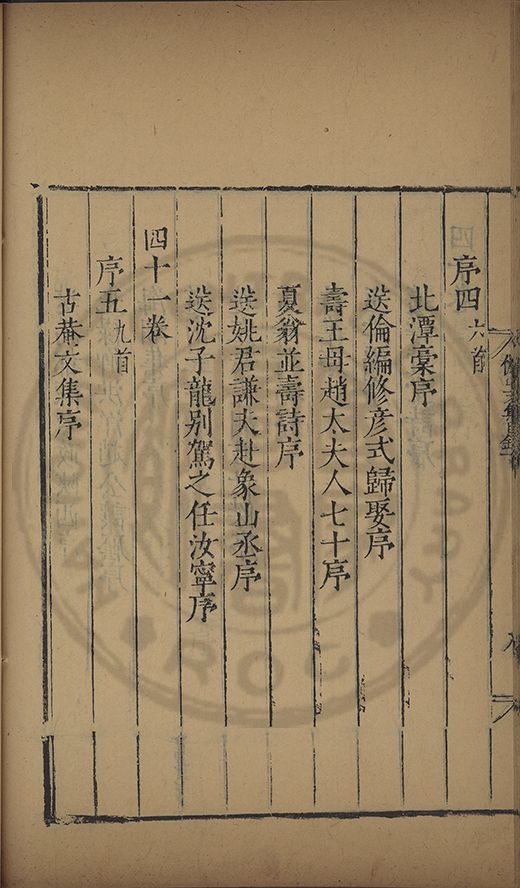 序四 六首
北潭稾序
送倫編修彦式歸娶序
壽王母趙太夫人七十序
夏翁並壽詩序
送姚君謙夫赴象山丞序
送沈子龍别駕之任汝寧序
四十一卷
序五 九首
古菴文集序